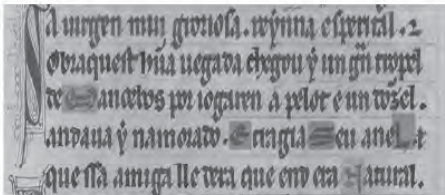 A uirgen mui groriosa. reynna esperital.
aquest hũa uegada chegou y un gñ tropel
de Mancebos por iogaren a pelot e un dõzel.
andaua y namorado. E tragia Seu aneL.
que ssa amiga lle dera que end era Natural.